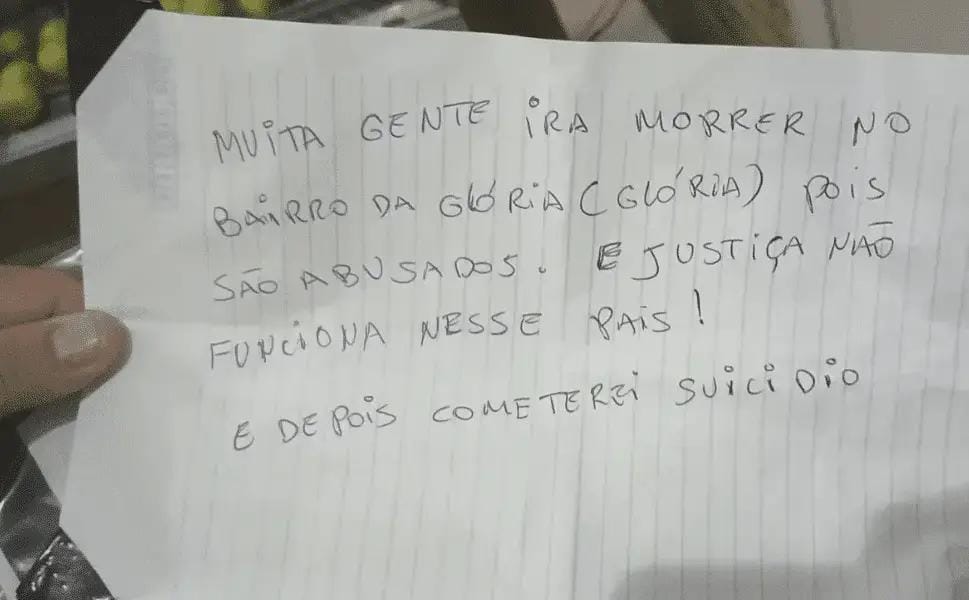 MUITA GENTE IRA MORRER NO
BAIRRO DA GLÓRIA (GLÓRIA) POIS
SÃO ABUSADOS. E JUSTIÇA NÃO
FUNCIONA NESSE PAIS!
E DEPOIS COMETEREI SUICIDIO